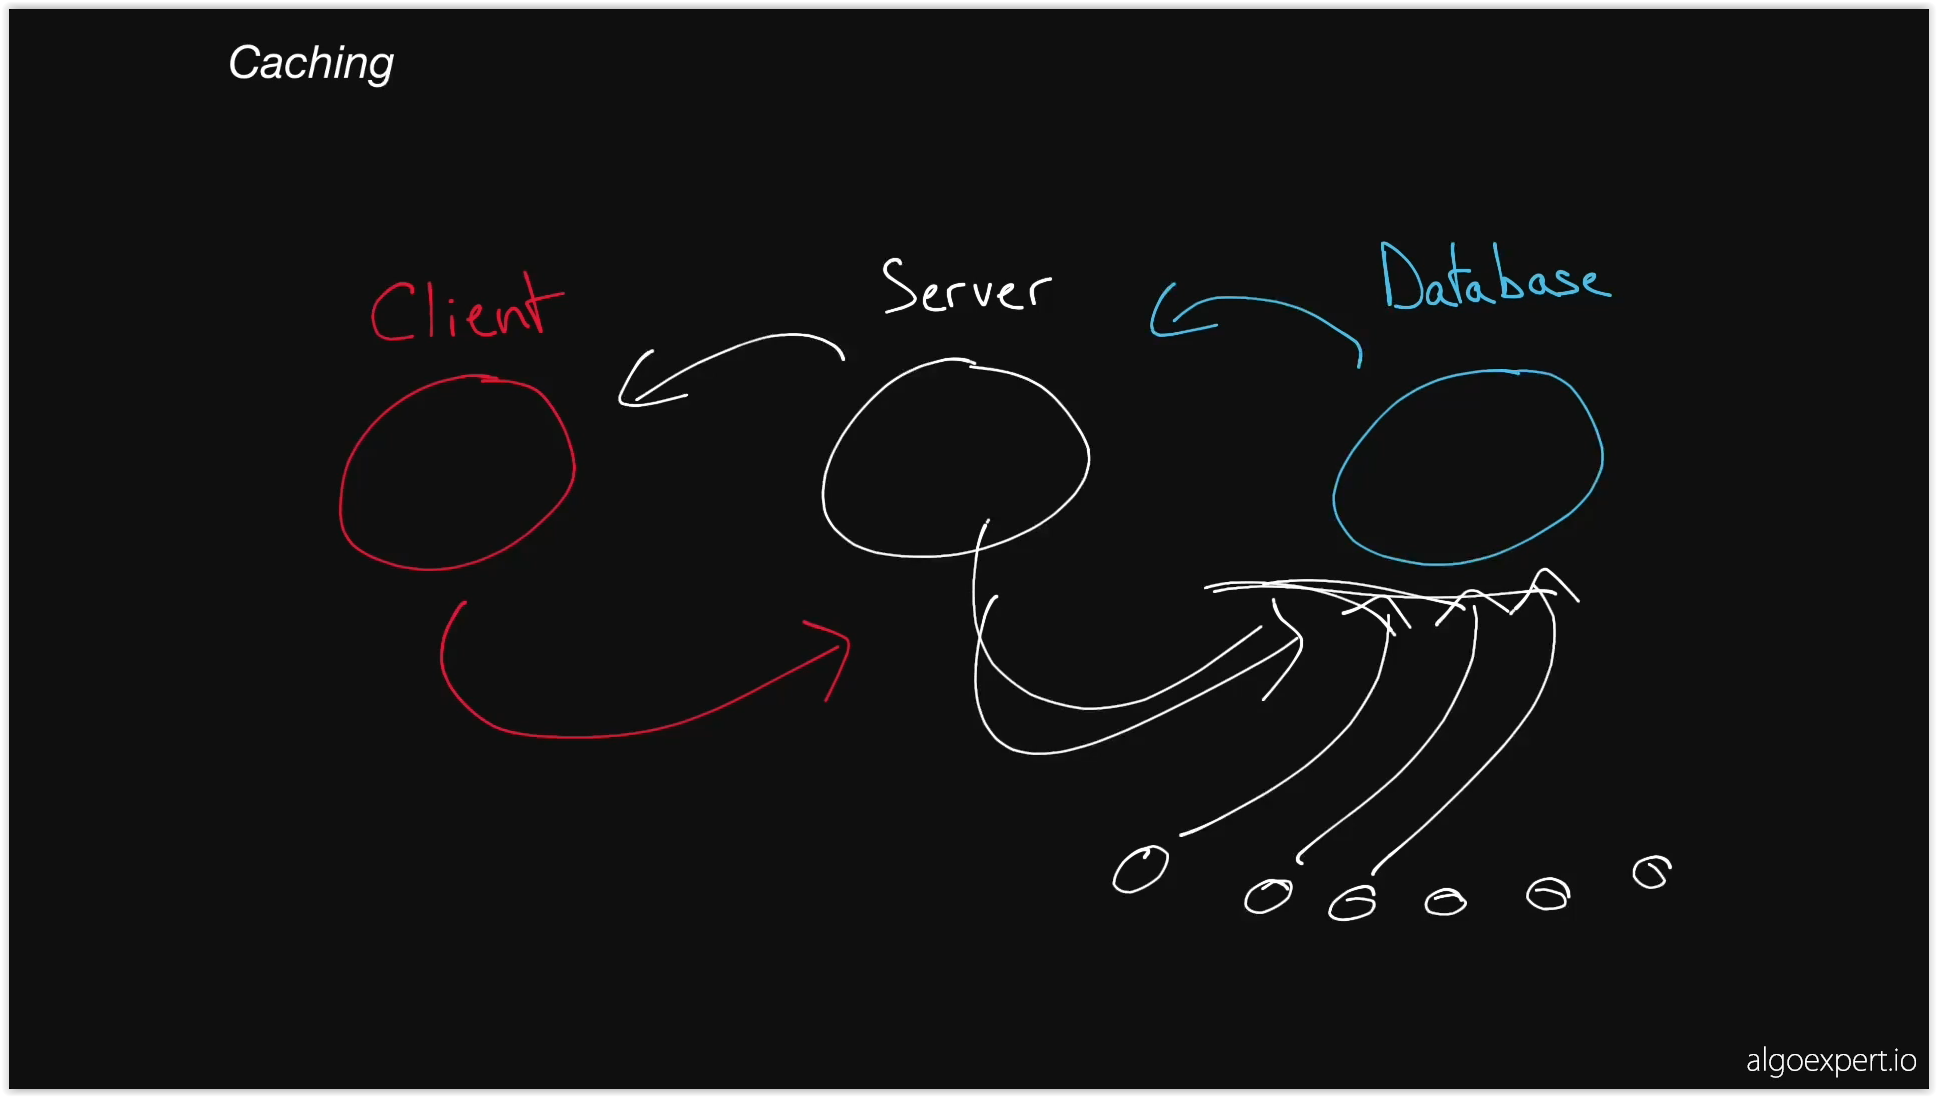 Caching
Client
Server
Database
algoexpert.io